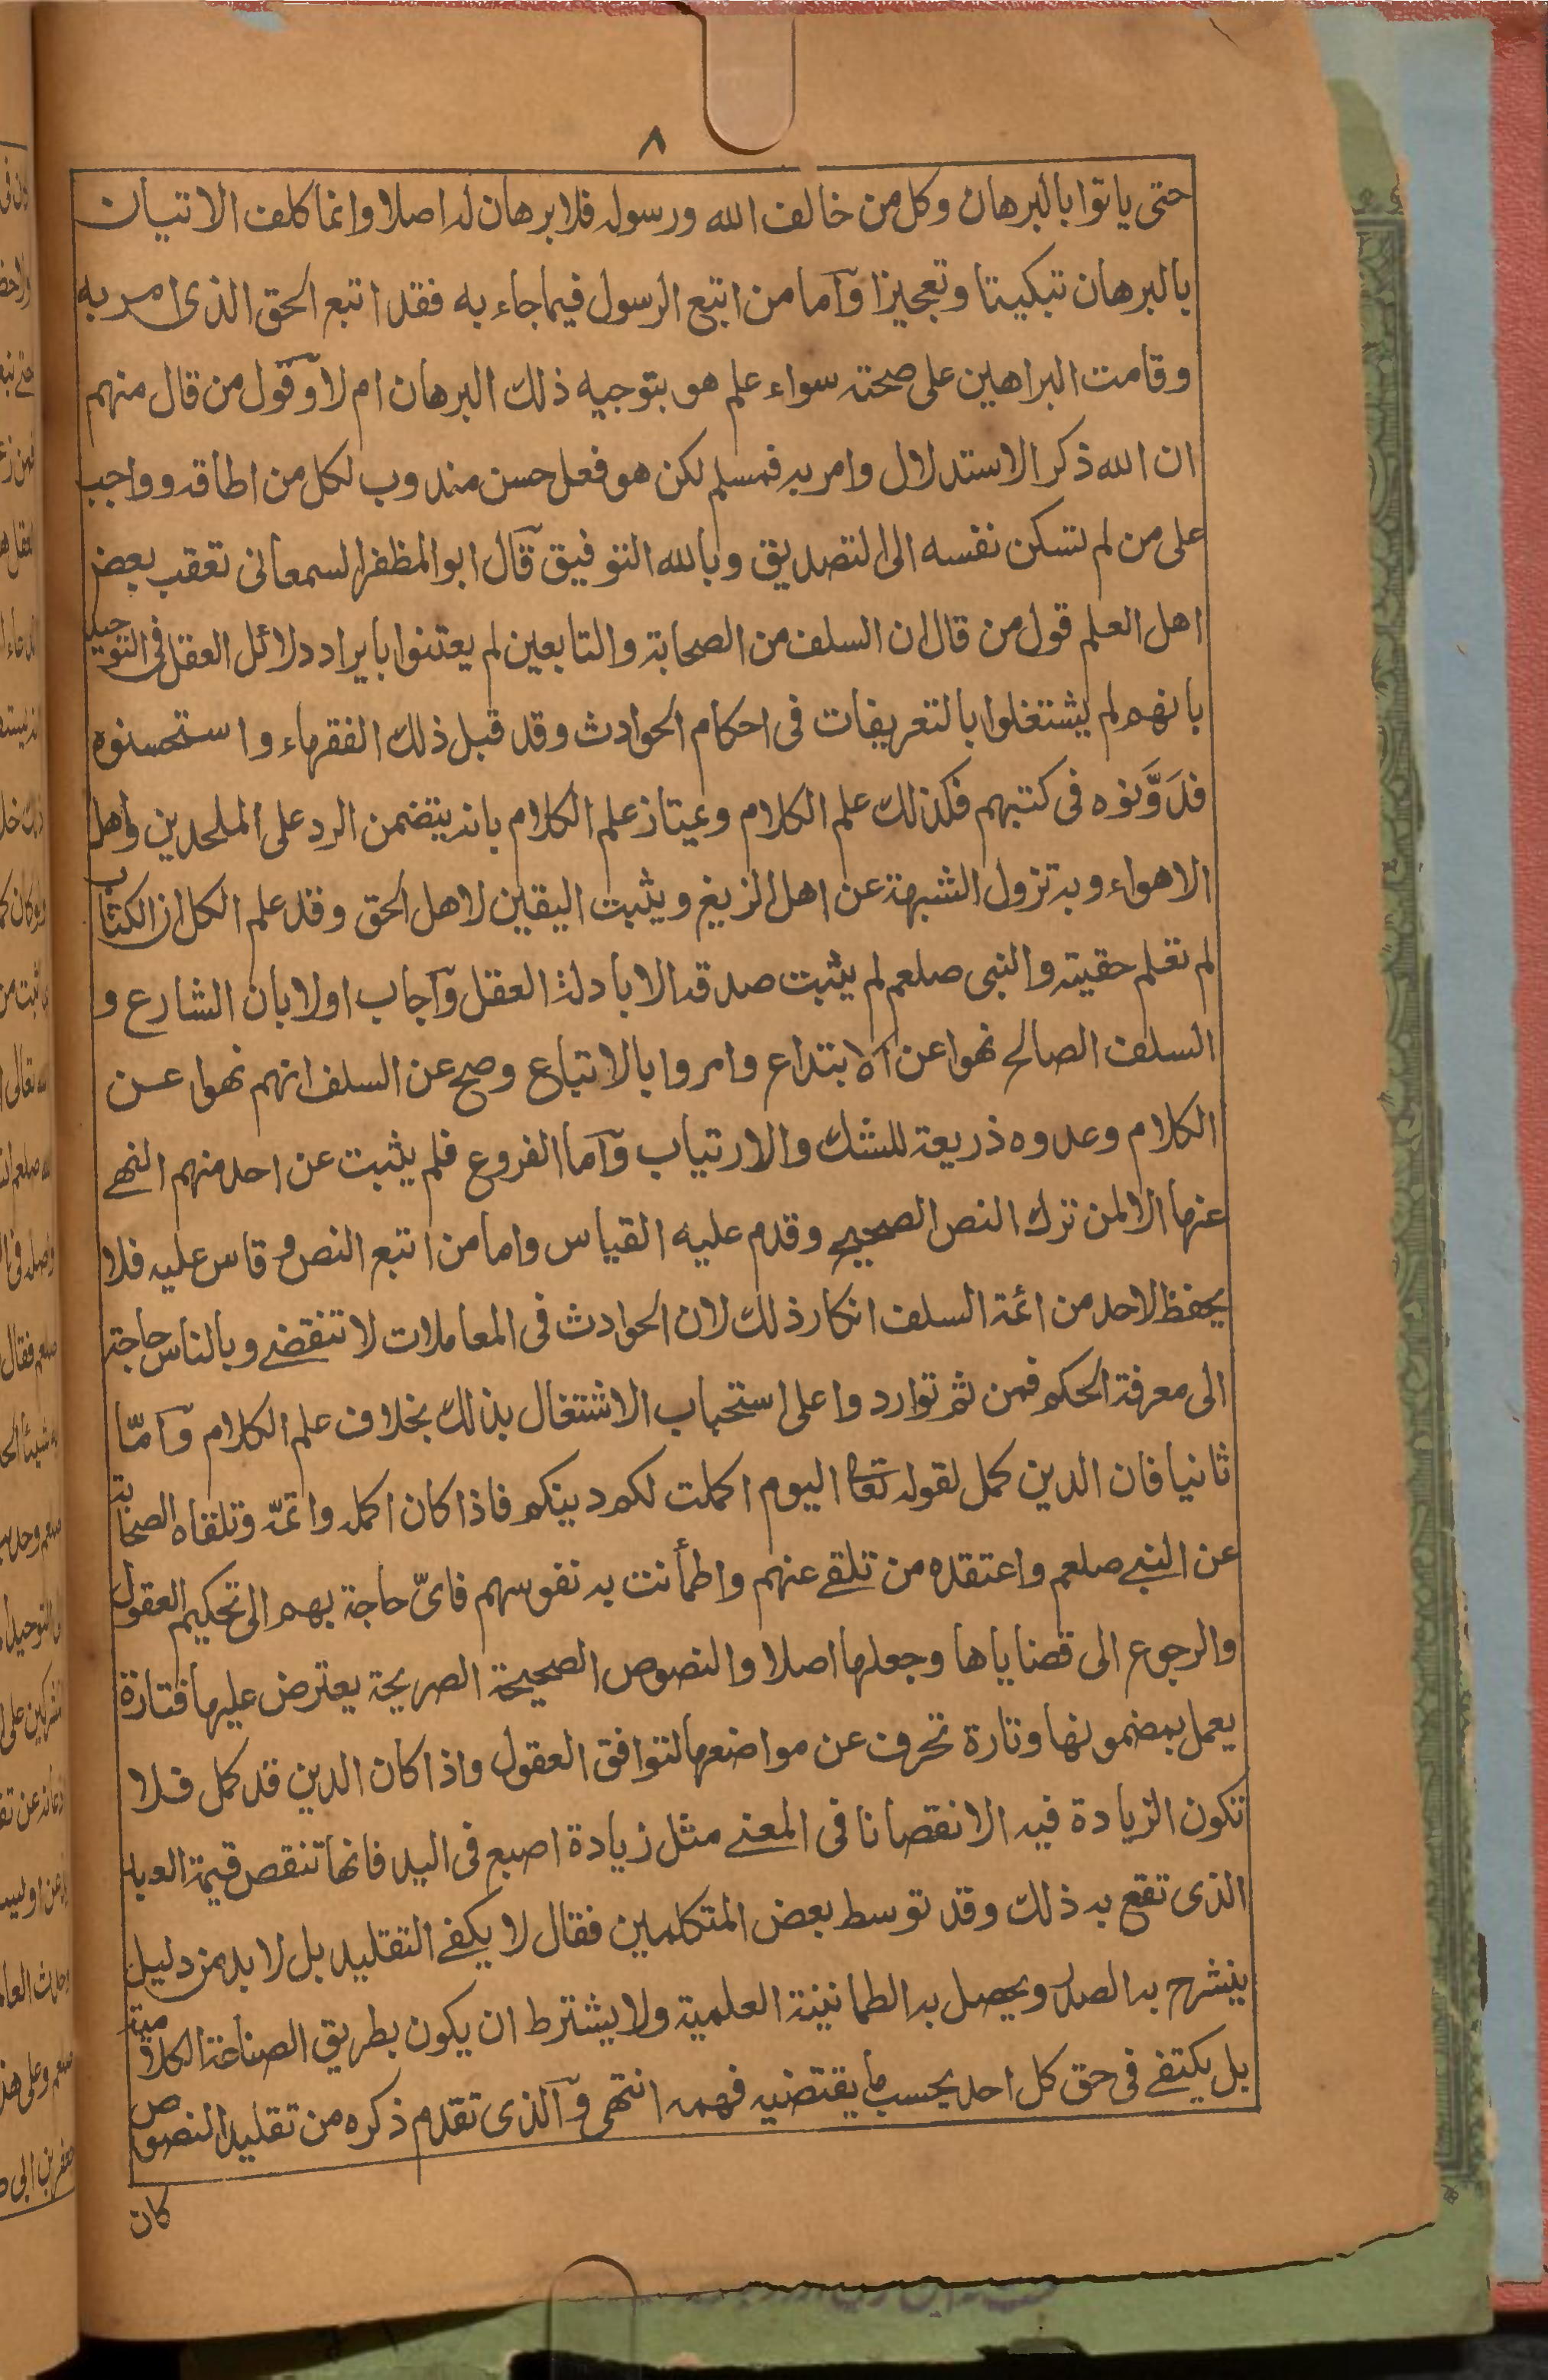 ٨
حتى ياتوا بالبرهان وكل من خالف الله ورسوله فلا برهان له اصلا وانما كلف الاتيان
بالبرهان تبكيتا وتعجيزا وآما من اتبع الرسول فيما جاء به فقد اتبع الحق الذى امر به
وقامت البراهين على صحته سواء علم هو بتوجيه ذلك البرهان ام لا وقول من قال منهم
ان الله ذكر الاستدلال وامر به فمسلم لكن هو فعل حسن مندوب لكل من اطاقه وواجب
على من لم تسكن نفسه الى التصديق وبالله التوفيق قال ابو المظفر السمعانى تعقب بعض
اهل العلم قول من قال ان السلف من الصحابة والتابعين لم يعتنوا بايراد دلائل العقل فى التوحيد
بانهم لم يشتغلوا بالتعريفات فى احكام الحوادث وقد قبل ذلك الفقهاء واستحسنوه
فدَوَّنوه فى كتبهم فكذلك علم الكلام ويمتاز علم الكلام بانه يتضمن الرد على الملحدين واهل
الاهواء وبه تزول الشبهة عن اهل الزيغ ويثبت اليقين لاهل الحق وقد علم الكل ان الكتاب
لم تعلم حقيته والنبى صلعم لم يثبت صدقه الا بادلة العقل وآجاب اولا بان الشارع و
السلف الصالح نهوا عن الابتداع وامروا بالاتباع وصح عن السلف انهم نهوا عن
الكلام وعدوه ذريعة للشك والارتياب وآما الفروع فلم يثبت عن احد منهم النهے
عنها الا لمن ترك النص الصحيح وقدم عليه القياس واما من اتبع النص وقاس عليه فلا
يحفظ لاحد من ائمة السلف انكار ذلك لان الحوادث فى المعاملات لا تنقضے وبالناس حاجة
الى معرفة الحكم فمن ثم تواردوا على استحباب الاشتغال بذلك بخلاف علم الكلام وآمّا
ثانيا فان الدين كمل لقوله تعا اليوم اكملت لكم دينكم فاذا كان اكمله واتمّه وتلقاه الصحابة
عن النبے صلعم واعتقده من تلقے عنهم واطمأنت به نفوسهم فاىّ حاجة بهم الى تحكيم العقول
والرجوع الى قضاياها وجعلها اصلا والنصوص الصحيحة الصريحة يعترض عليها فتارة
يعمل بمضمونها وتارة تحرف عن مواضعها لتوافق العقول واذا كان الدين قد كمل فلا
تكون الزيادة فيه الا نقصانا فى المعنے مثل زيادة اصبع فى اليد فانها تنقص قيمة العبد
الذى تقع به ذلك وقد توسط بعض المتكلمين فقال لا يكفے التقليد بل لا بد من دليل
ينشرح به الصدر ويحصل به الطمانينة العلمية ولا يشترط ان يكون بطريق الصناعة الكلامية
بل يكتفے فى حق كل احد بحسب ما يقتضيه فهمه انتهى وآلذى تقدم ذكره من تقليد النصوص
كان